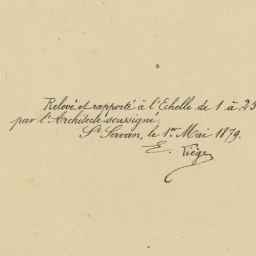 Relevé et rapporté à l'Echelle de 1 à 25
par l'Architecte soussigné,
St Servan, le 1er Mai 1879.
E. Liège